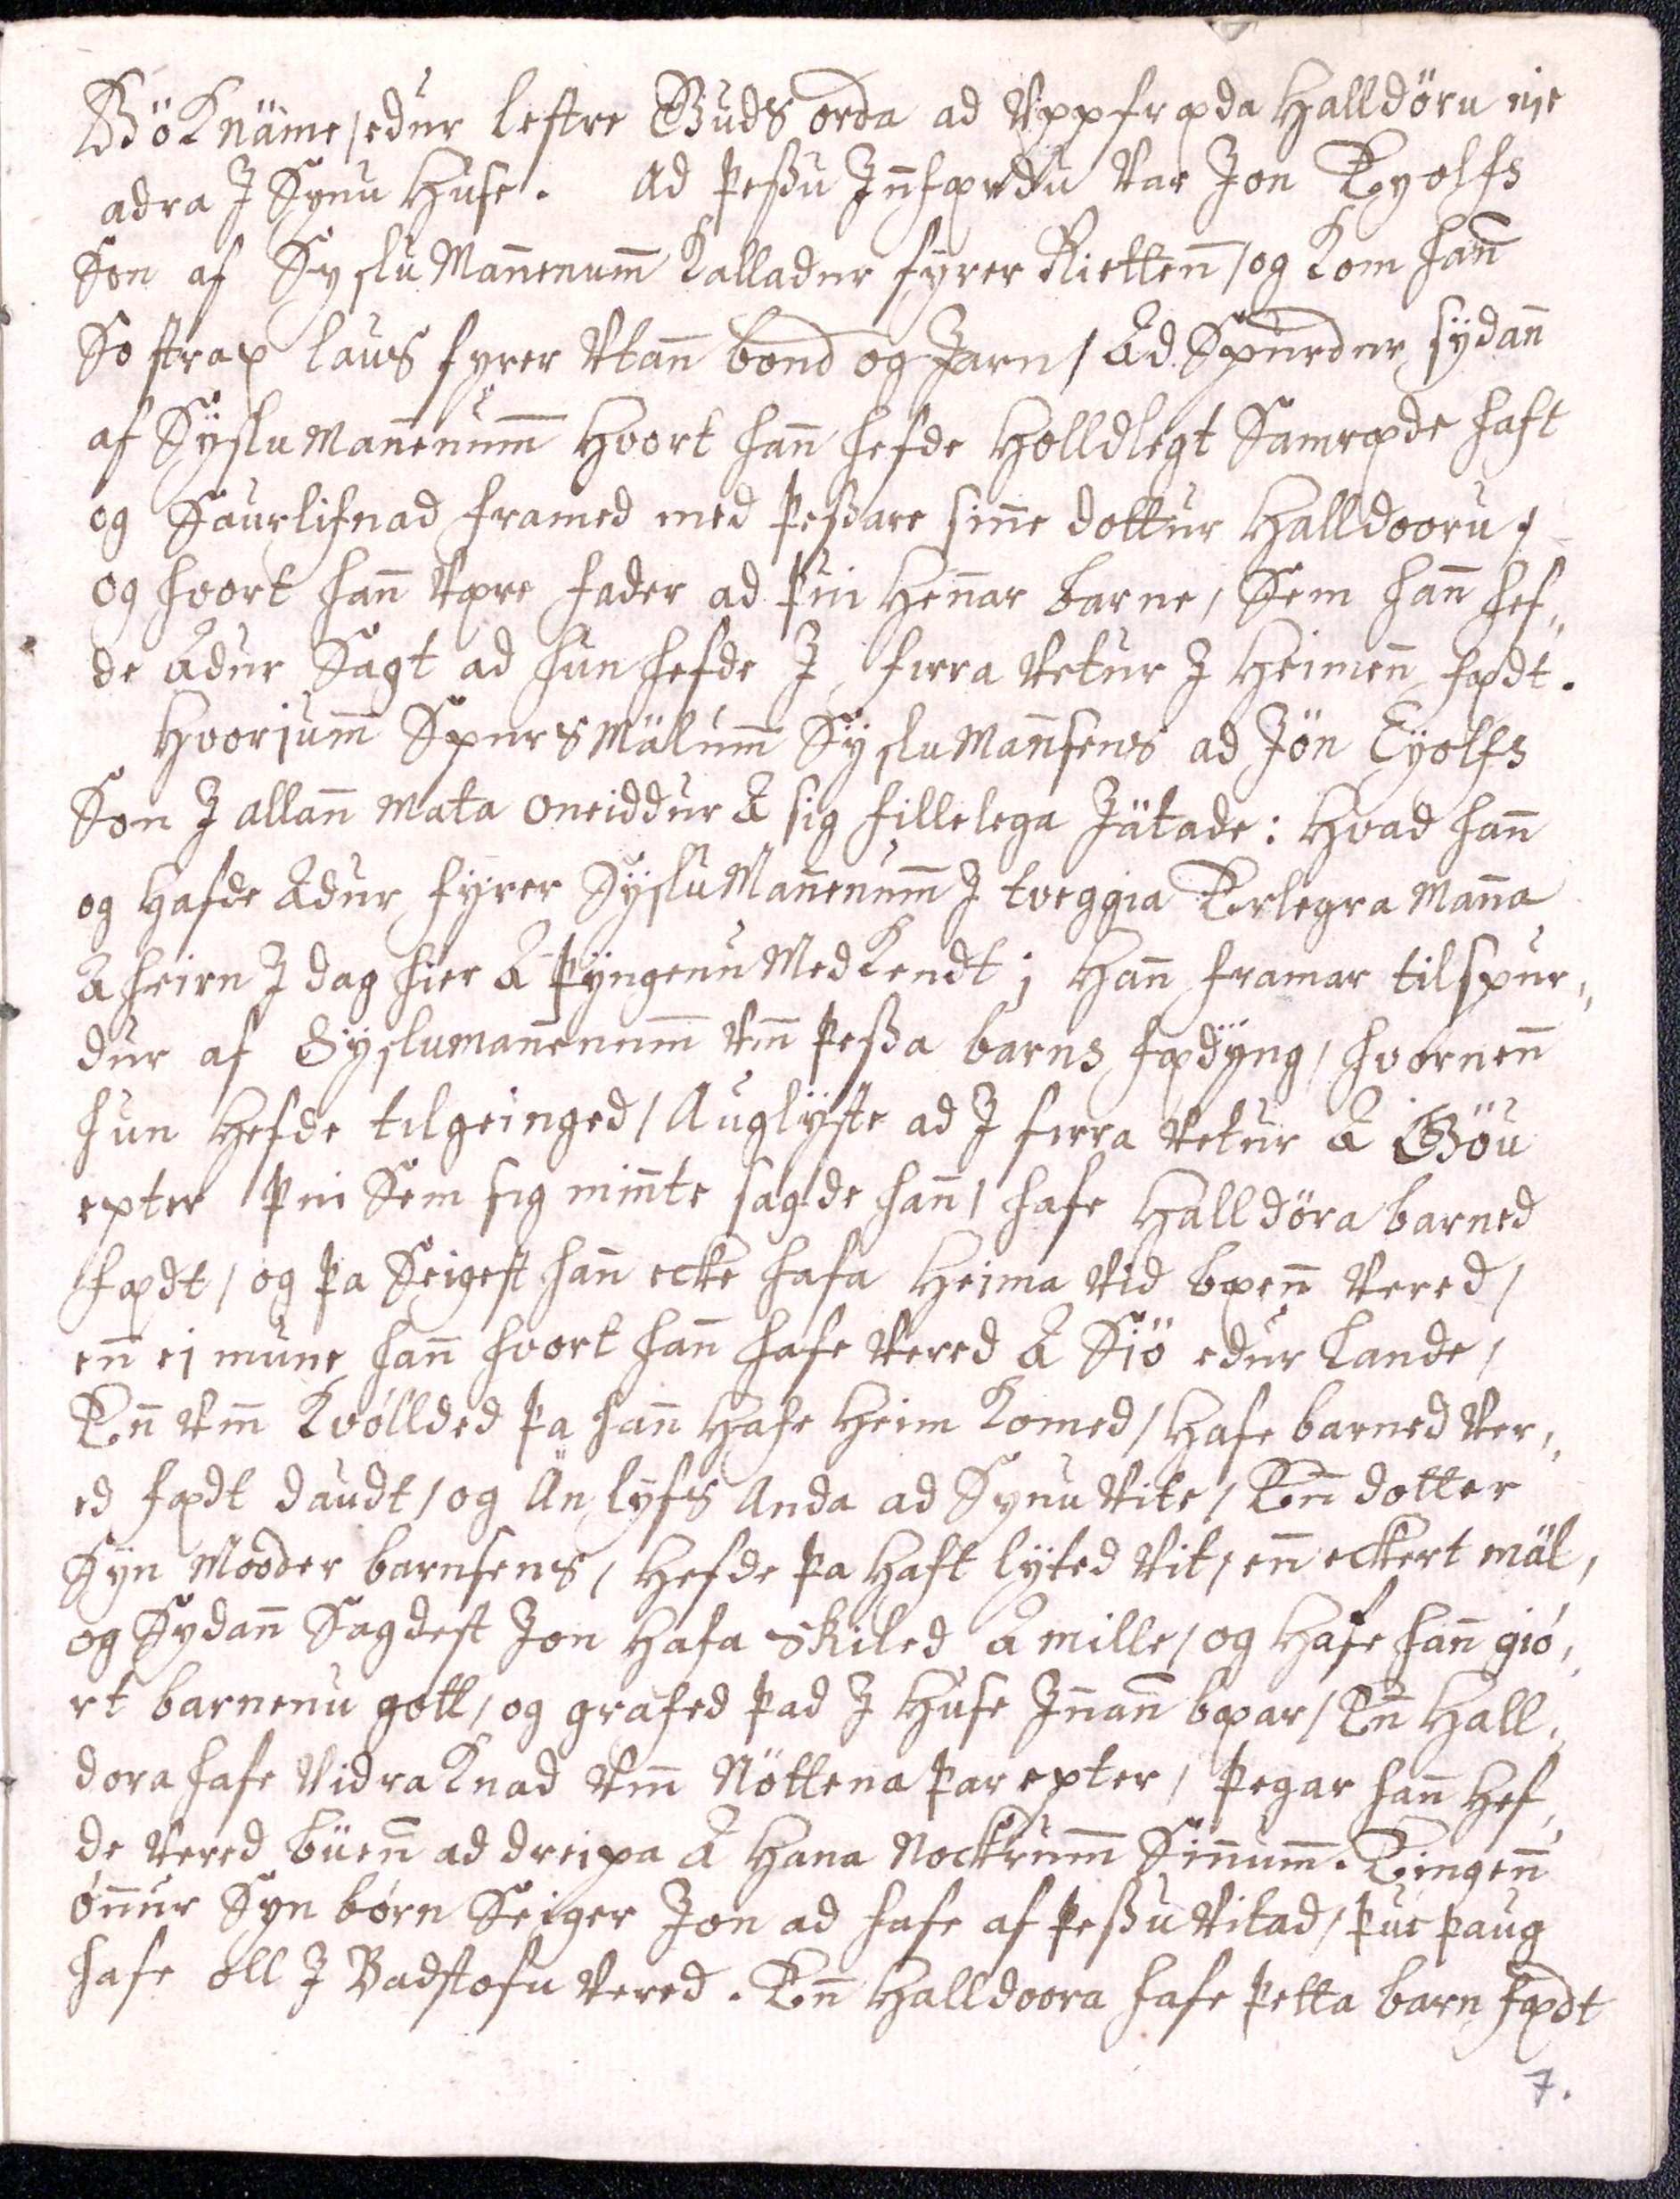 Bökname /edur lestre Guds orda ad Uppfræda Halldöru nie
adra J Synu Huse. Ad þeßu Jnnfærdu Var Jon Eyolfs
Son af Syslu Mannenumm Kalladur fyrer Riettenn /og Kom hann
So strax laus fyrer Utann bönd og Jarn / Ad Spurdur sydann
af Sÿslu Mannenumm Hvort hann hefde Holldlegt Samræde haft
og Saurlifnad framed med þeßare sinne dottur Halldooru;
og hvort hann Være fader ad þui Hennar barne, Sem hann hef„
de Adur Sagt ad hun hefde J firra Vetur J Heimenn fædt.
Hvorjumm Spurs Mälumm Sÿslu Mannsens ad Jön Eyolfs
Son J allann Mata Oneiddur A sig fillelega Jätade: Hvad hann
og Hafde Adur fyrer Sÿslu Mannenumm J tveggia Erlegra Manna
A heirn J dag hier A Þÿngenu Med Kendt; Hann framar tilspur„
dur af Sÿslumannenumm Umm þeßa barns fædÿng / hvornenn
hun Hefde tilgeinged / Auglÿste ad J firra Vetur A Göu
epter þui Sem sig minnte sagde hann / hafe Halldöra barned
fædt / og þa Seigest hann ecke hafa Heima Vid bæenn Vered /
enn ei mune hann hvort hann hafe Vered A Siö edur Lande /
Enn Umm Kvöllded þa hann Hafe Heim Komed / Hafe barned Ver„
ed fædt daudt / og Än lyfs Anda ad Synu Vite / Enn dotter
Syn Mooder barnsens / Hefde þa Haft lyted Vit / enn eckert mäl,
og Sydann Sagdest Jon Hafa Skiled A mille / og Hafe hann giö„
rt barnenu gott / og grafed þad J Huse Jnnann bæar / Enn Hall„
dora hafe Vidra Knad Umm Nöttena þar epter / þegar hann Hef„
de Vered büenn ad dreipa A Hana Nockrumm Sinnumm. Eingenn
önnur Syn börn Seiger Jon ad hafe af þeßu Vitad / þui þaug
hafe öll J Badstofu Vered. Enn Halldoora hafe þetta barn fædt
7.